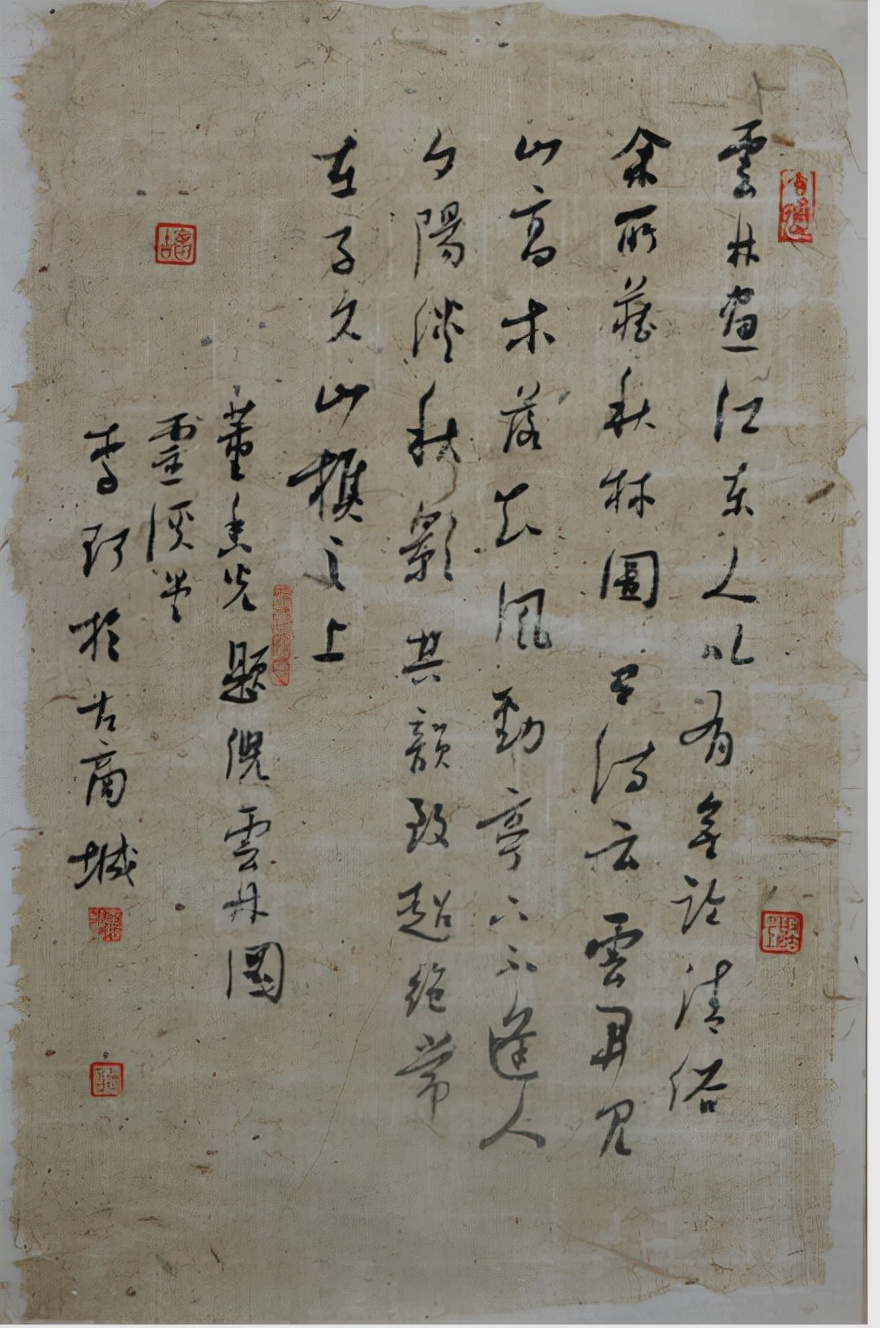 雲林畫江東人以有無論清俗
余所藏秋林圖詩云雲開見
山高木落知風勁亭下不逢人
夕陽淡秋影其韻致超絕常
在子久山樵之上
董香光題倪雲林圖
靈溪
李於古商城